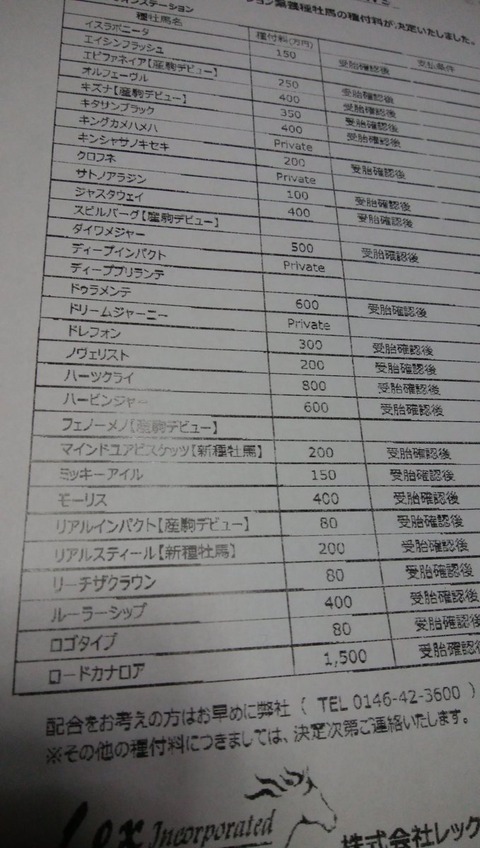 インステーション
ション繋養種牡馬の種付料が決定いたしました。
種牡馬名 種付料(万円) 支払条件
イスラボニータ 150 受胎確認後
エイシンフラッシュ
エピファネイア【産駒デビュー】 250 受胎確認後
オルフェーヴル 400 受胎確認後
キズナ【産駒デビュー】 350 受胎確認後
キタサンブラック 400 受胎確認後
キングカメハメハ Private
キンシャサノキセキ 200 受胎確認後
クロフネ Private
サトノアラジン 100 受胎確認後
ジャスタウェイ 400 受胎確認後
スピルバーグ【産駒デビュー】
ダイワメジャー 500 受胎確認後
ディープインパクト Private
ディープブリランテ
ドゥラメンテ 600 受胎確認後
ドリームジャーニー Private
ドレフォン 300 受胎確認後
ノヴェリスト 200 受胎確認後
ハーツクライ 800 受胎確認後
ハービンジャー 600 受胎確認後
フェノーメノ【産駒デビュー】
マインドユアビスケッツ【新種牡馬】 200 受胎確認後
ミッキーアイル 150 受胎確認後
モーリス 400 受胎確認後
リアルインパクト【産駒デビュー】 80 受胎確認後
リアルスティール【新種牡馬】 200 受胎確認後
リーチザクラウン 80 受胎確認後
ルーラーシップ 400 受胎確認後
ロゴタイプ 80 受胎確認後
ロードカナロア 1,500 受胎確認後
配合をお考えの方はお早めに弊社 ( TEL 0146-42-3600 )
※その他の種付料につきましては、決定次第ご連絡いたします。
Lex Incorporated
株式会社レック